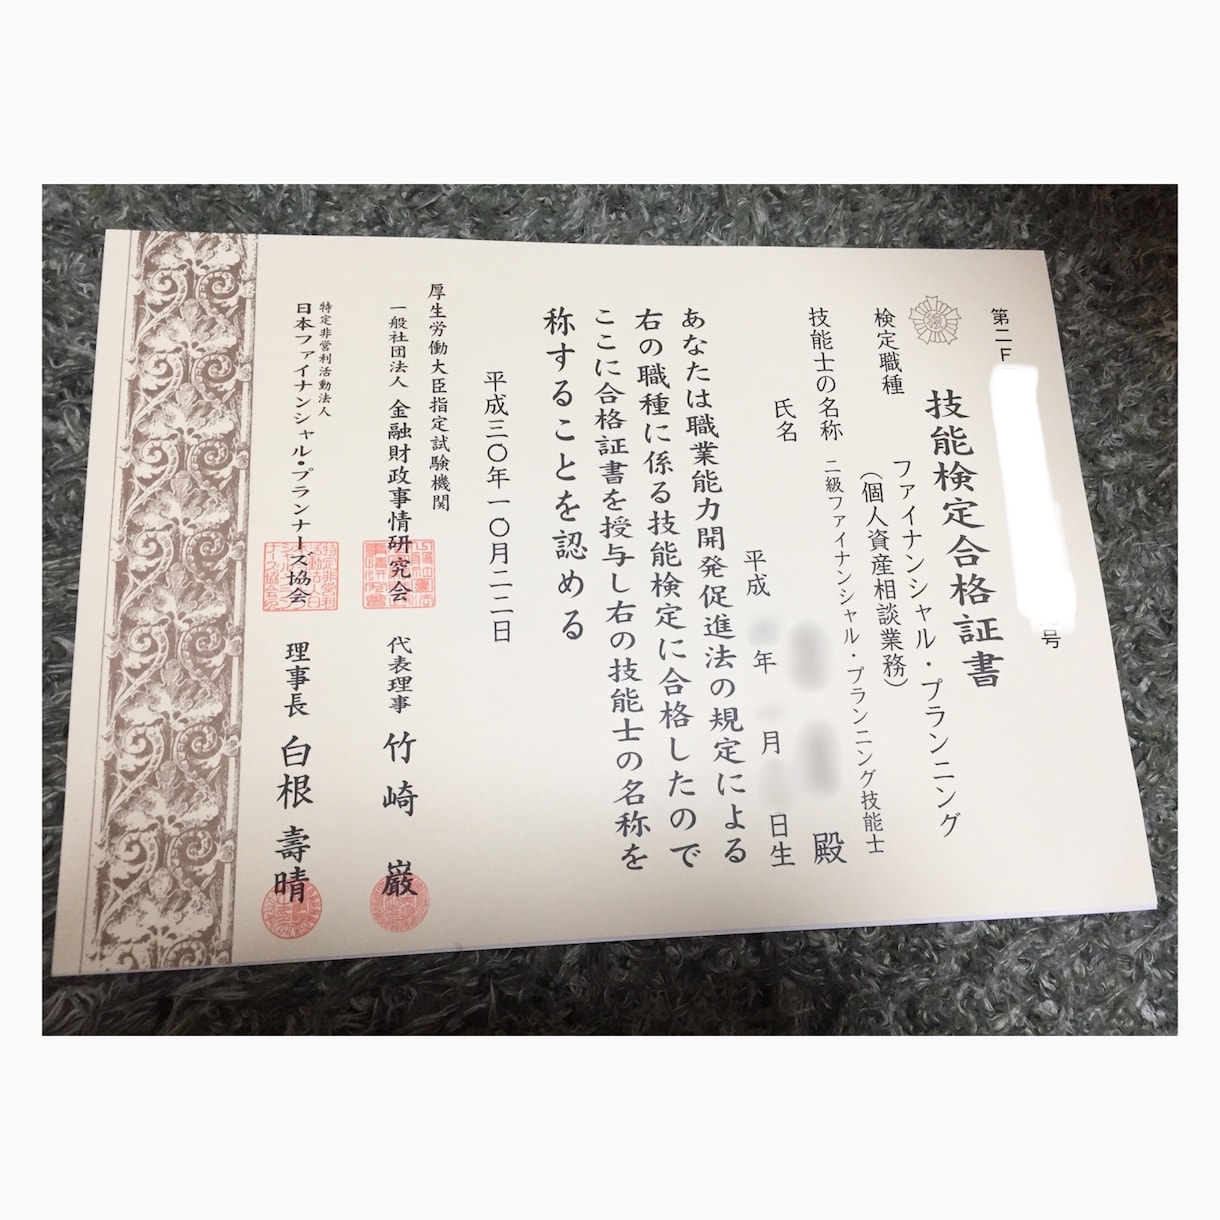 第二F
号
技能検定合格証書
検定職種
ファイナンシャル・プランニング
(個人資産相談業務)
技能士の名称
二級ファイナンシャル・プランニング技能士
氏名
殿
平成
年
月
日生
あなたは職業能力開発促進法の規定による
右の職種に係る技能検定に合格したので
ここに合格証書を授与し右の技能士の名称を
称することを認める
平成三〇年一〇月二二日
厚生労働大臣指定試験機関
一般社団法人 金融財政事情研究会 代表理事 竹崎 巌
特定非営利活動法人
日本ファイナンシャル・プランナーズ協会 理事長 白根 壽晴